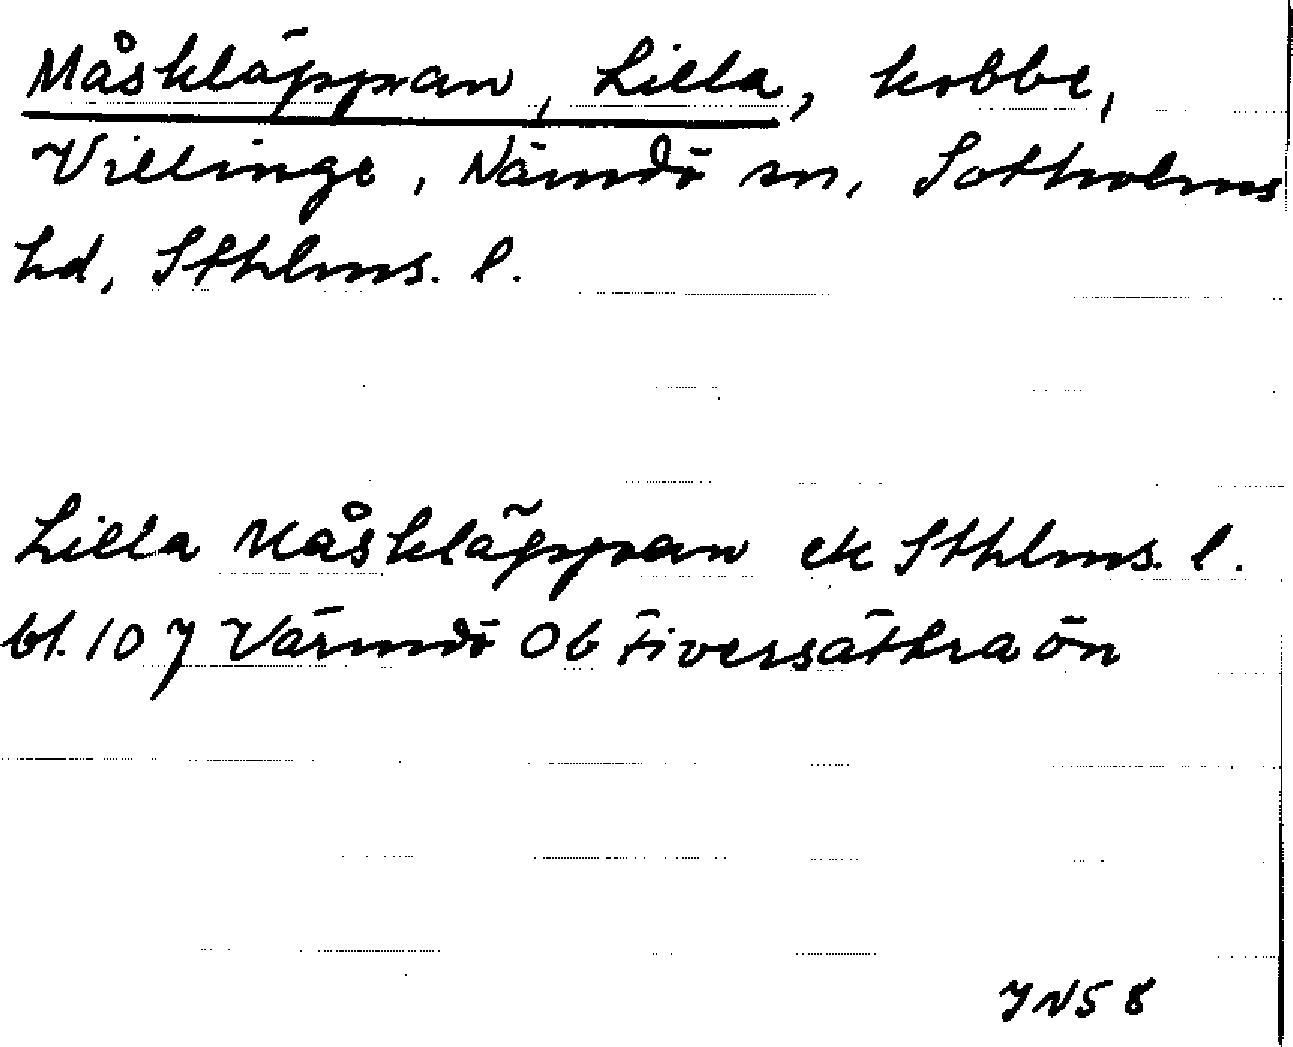 Måskläppan, Lilla, kobbe,
Villinge, Nämdö sn, Sotholms
hd, Sthlms. l.
Lilla Måskläppan ek Sthlms. l.
bl. 107 Värmdö Ob Tiversättra ön
JNS 8